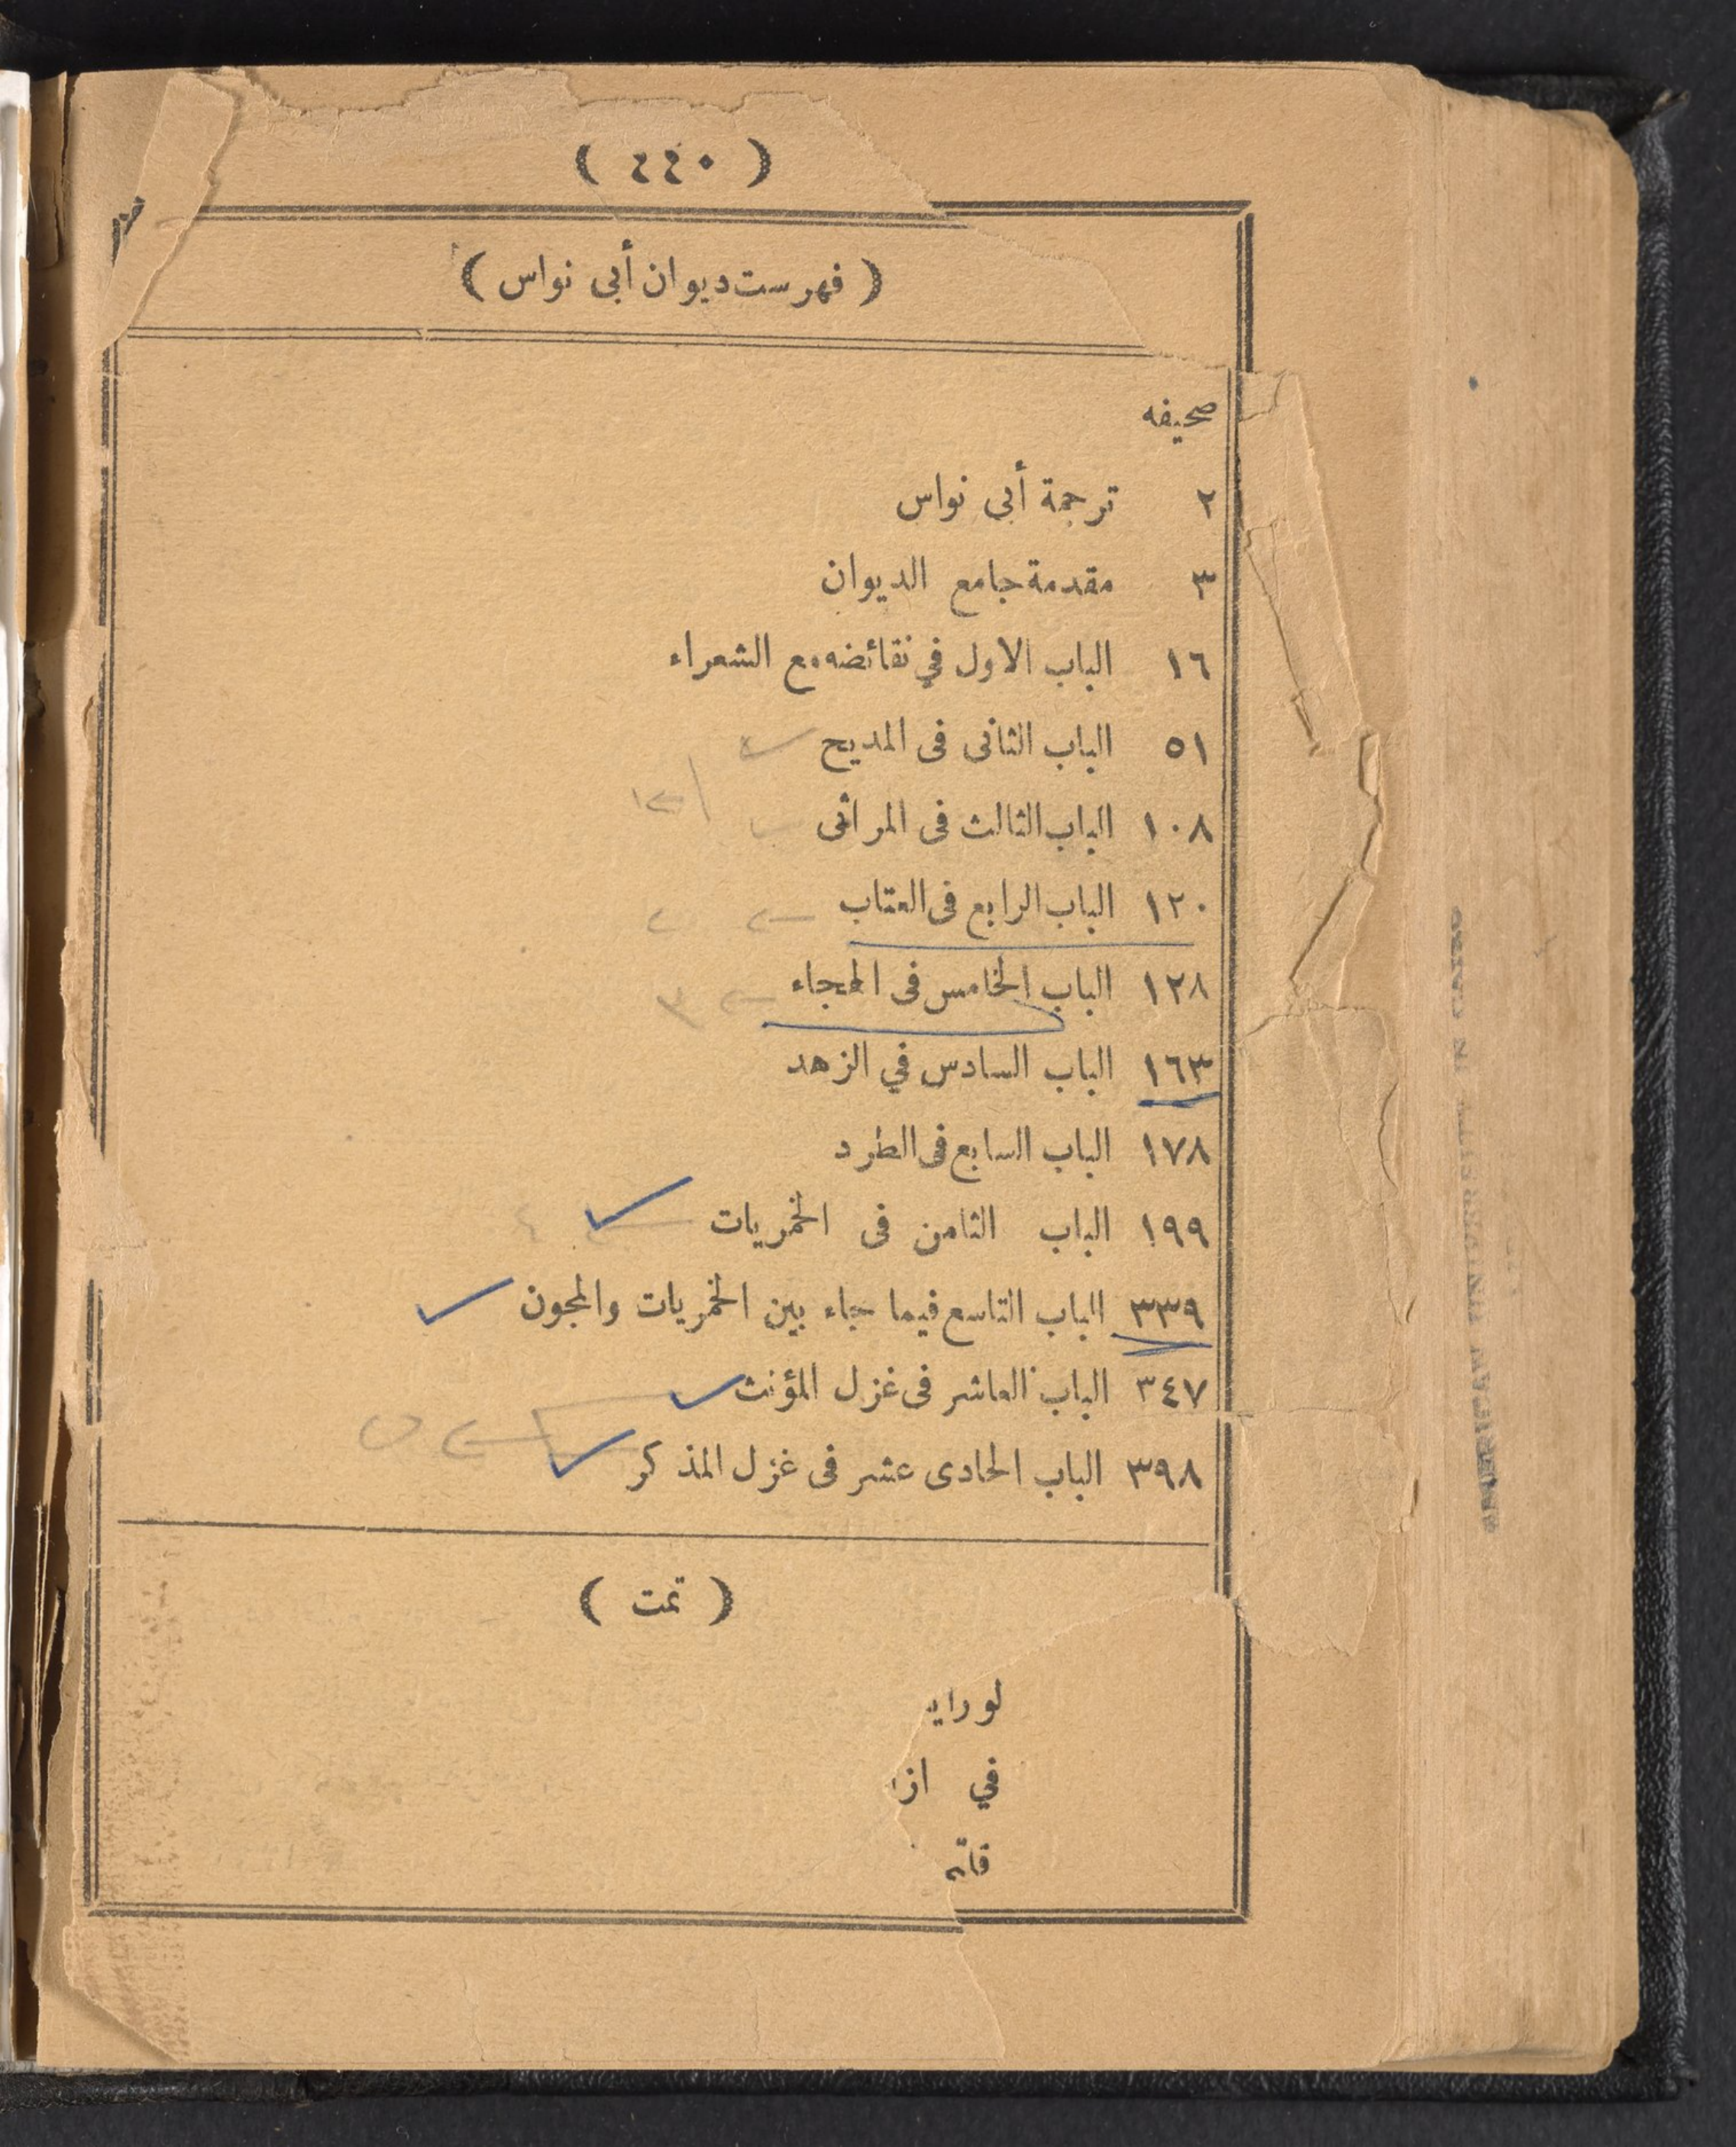 ( ٤٤٠ )
( فهرست ديوان أبى نواس )
صحيفه
٢ ترجمة أبى نواس
٣ مقدمة جامع الديوان
١٦ الباب الاول في نقائضه مع الشعراء
٥١ الباب الثانى فى المديح
١٠٨ الباب الثالث فى المراثى
١٢٠ الباب الرابع فى العتاب
١٢٨ الباب الخامس فى الهجاء
١٦٣ الباب السادس في الزهد
١٧٨ الباب السابع فى الطرد
١٩٩ الباب الثامن فى الخمريات
٣٣٩ الباب التاسع فيما جاء بين الخمريات والمجون
٣٤٧ الباب العاشر فى غزل المؤنث
٣٩٨ الباب الحادى عشر فى غزل المذكر
( تمت )
لو
في